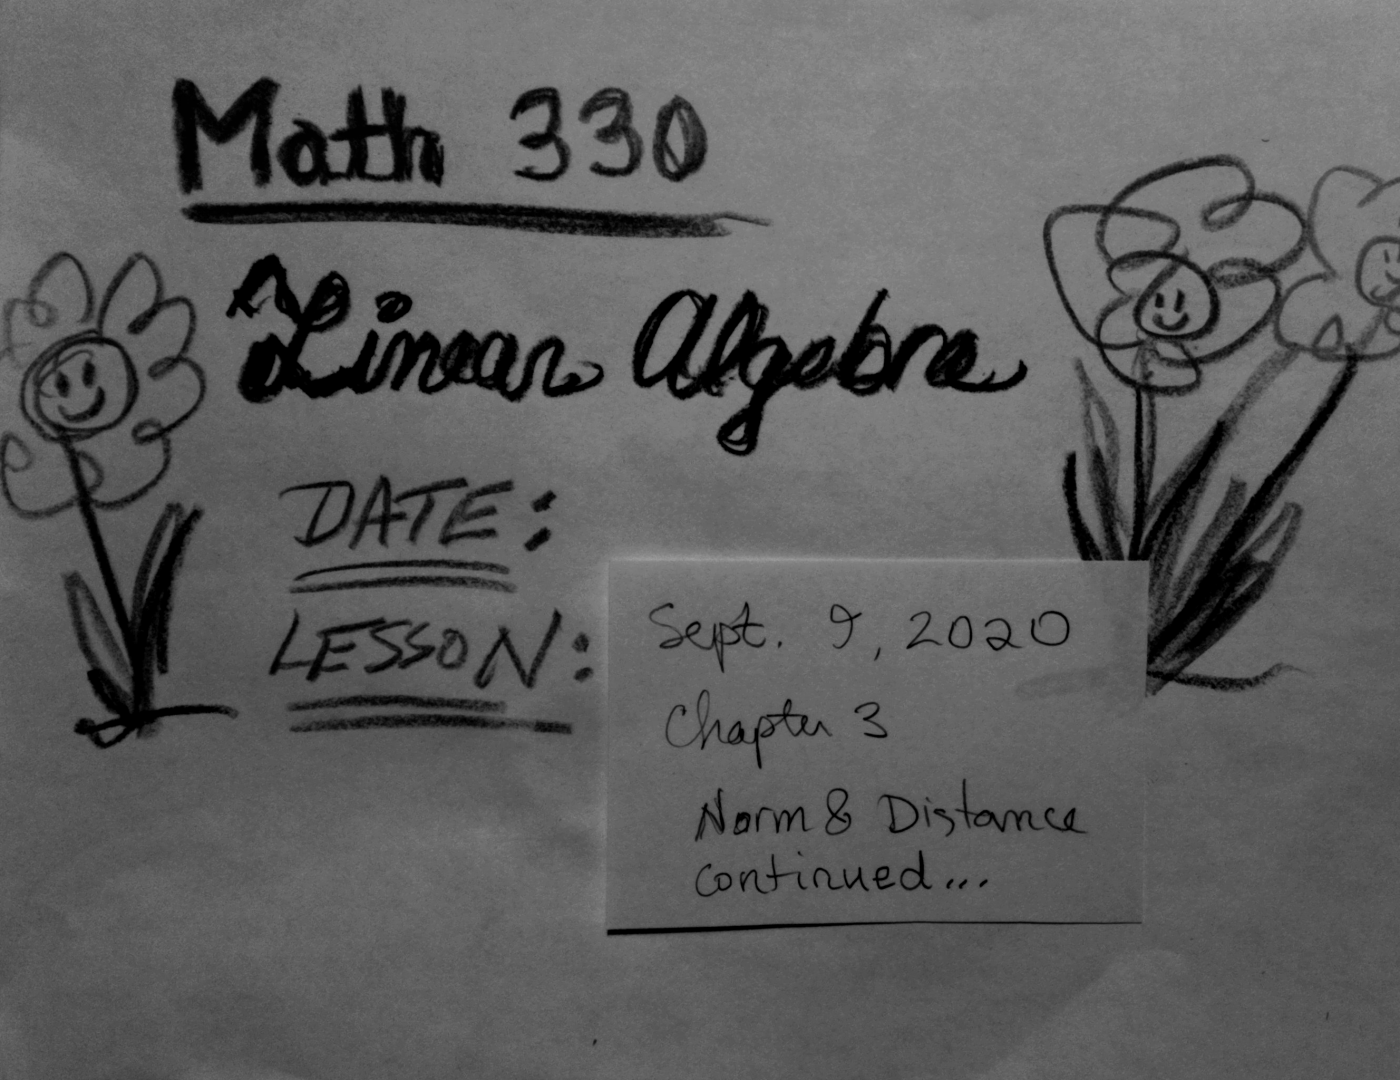 Math 330
Linear Algebra
DATE:
Sept. 9, 2020
LESSON:
Chapter 3
Norm & Distance
continued...